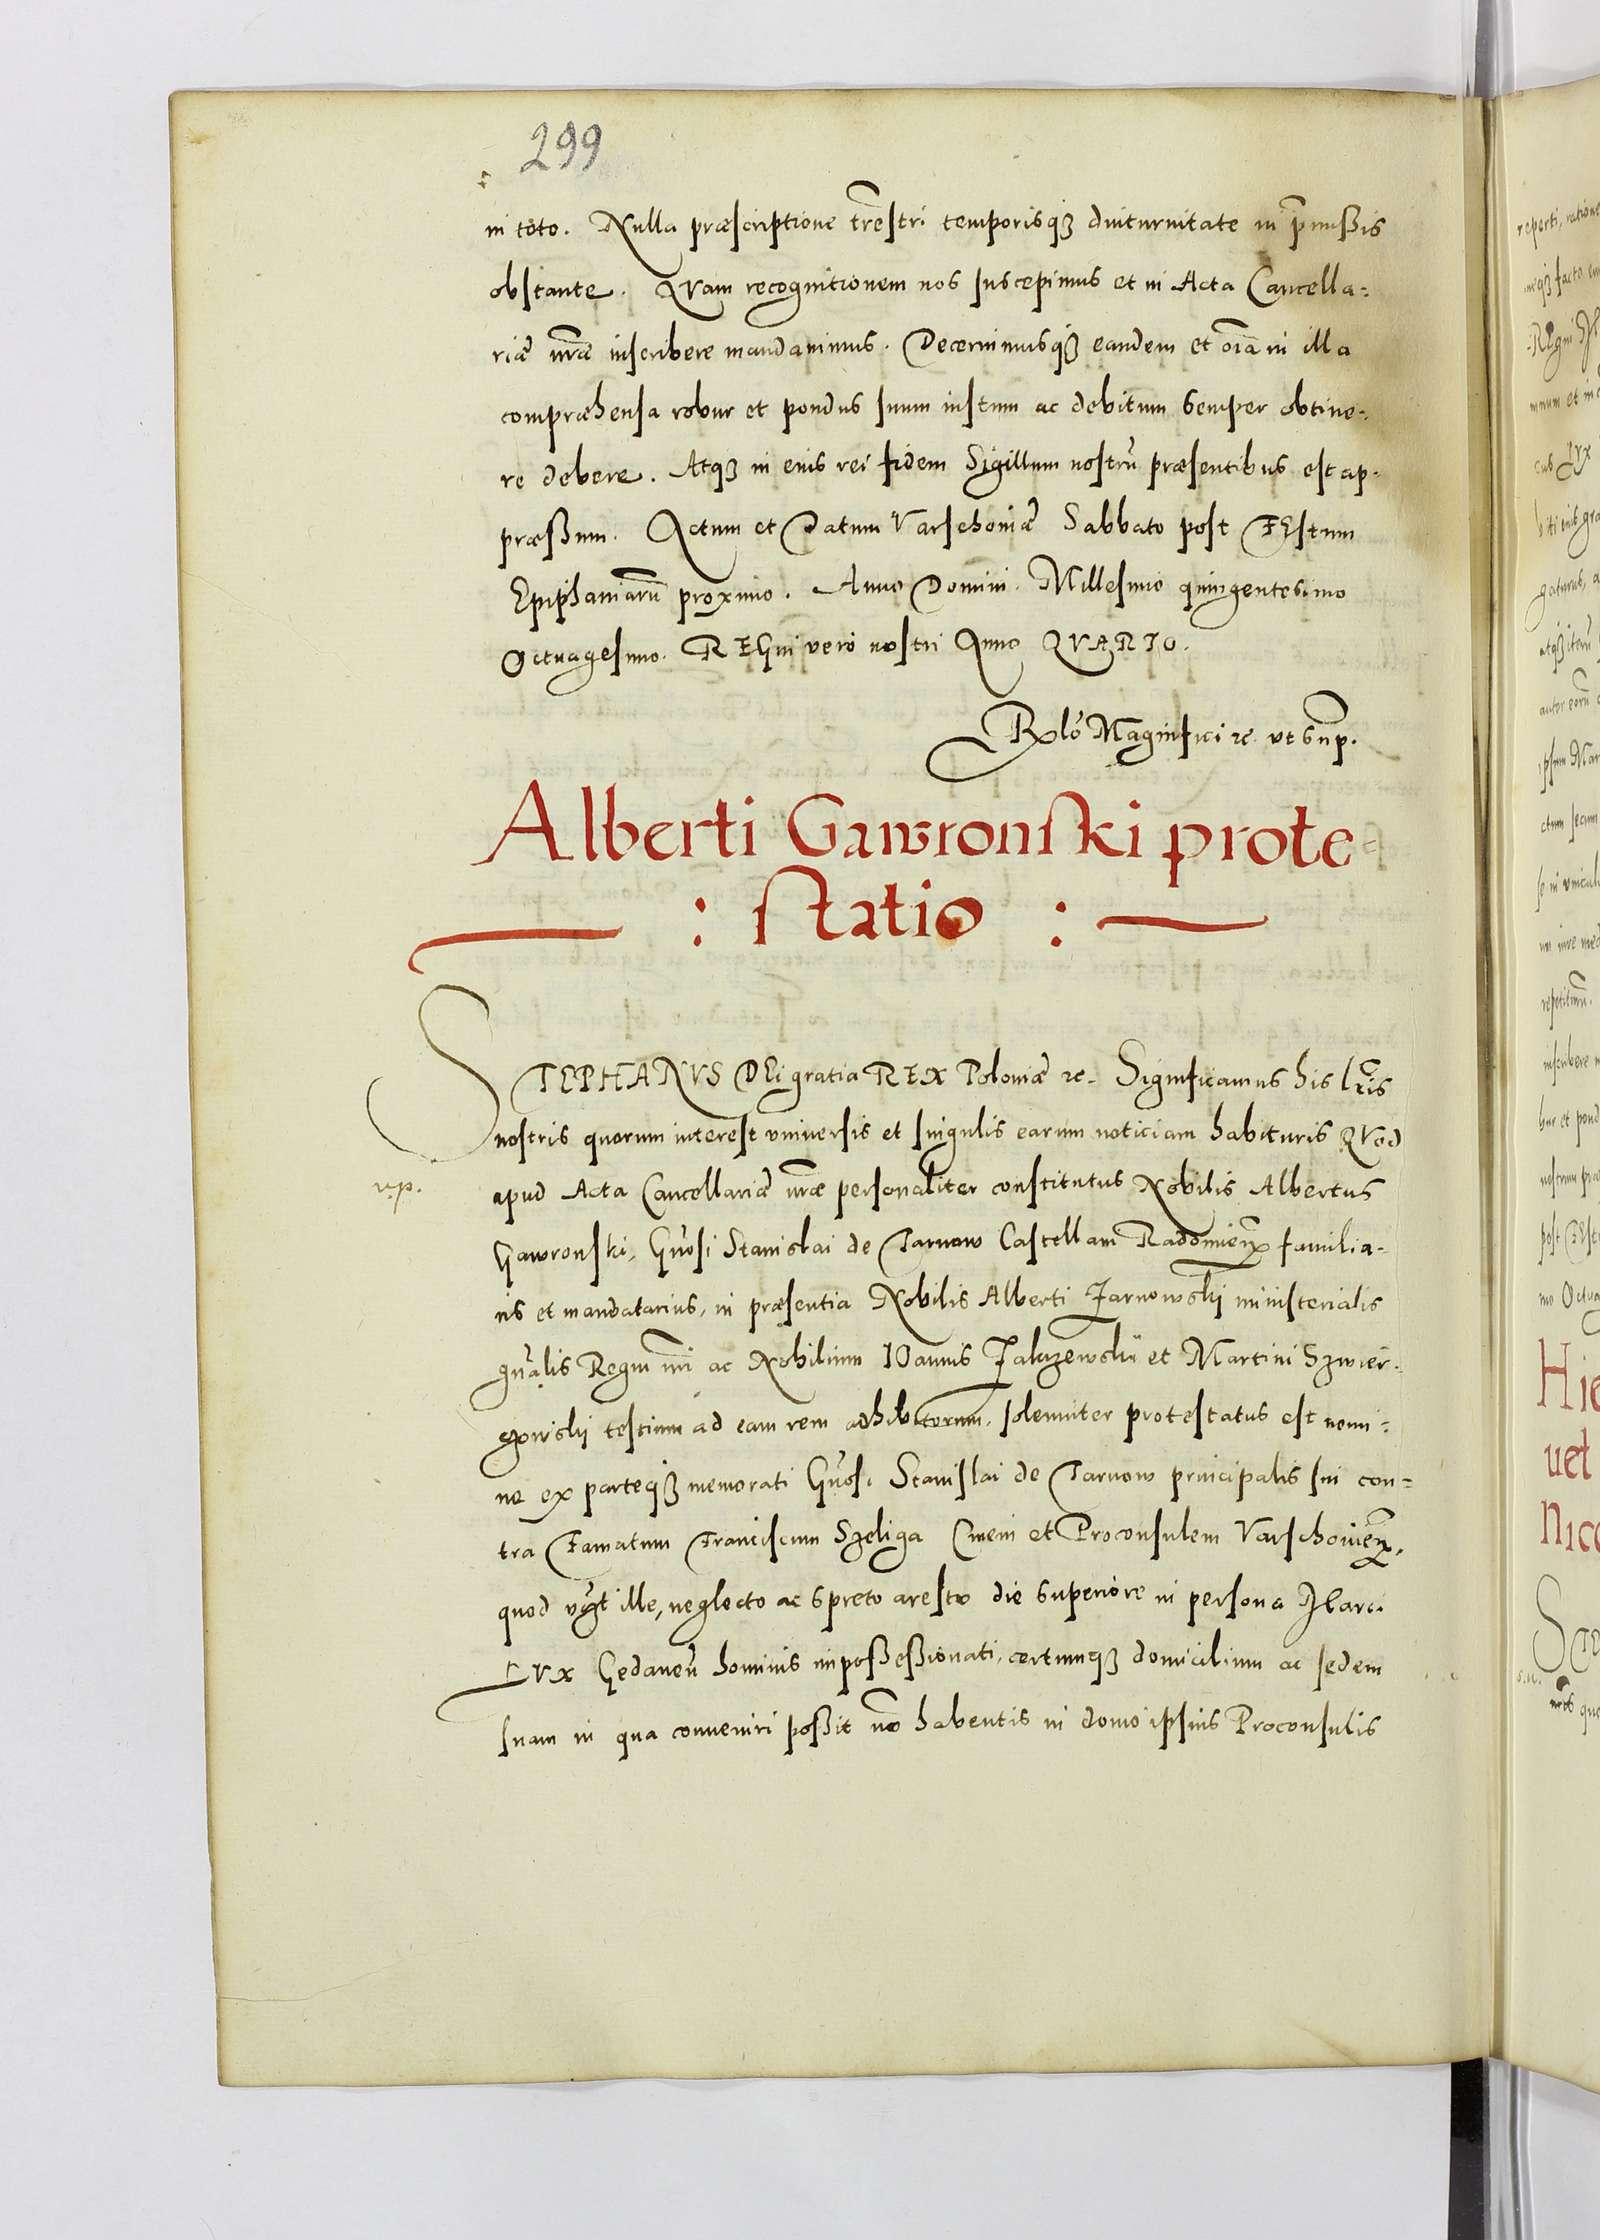 299
in toto. Nulla præscriptione trestri temporisq3 diuturnitate in pmissis
obstante. QVam recognitionem nos suscepimus et in Acta Cancella=
riæ nræ inscribere mandauimus. Decernimusq3 eandem et oia in illa
compræhensa robur et pondus suum iustum ac debitum semper obtine=
re debere. Atq3 in euis rei fidem Sigillum nostrū præsentibus est ap=
præssum. Actum et Datum Varschoniæ Sabbato post FEstum
Epiphaniarū proximo. Anno Domini. Millesimo quingentesimo
Octuagesimo. REGni vero nostri Anno QVARTO.
Rlō Magnifici ꝛc. vt sup.
Alberti Gawronski prote=
: statio :
STEPHANVS DEi gratia REX Poloniæ ꝛc. Significamus his lris
nostris quorum interest vniuersis et singulis earum noticiam habituris QVod
r.p.
apud Acta Cancellariæ nræ personaliter constitutus Nobilis Albertus
Gawronski, Gnosi Stanislai de Tarnow Castellani Radomien familia=
ris et mandatarius, in præsentia Nobilis Alberti Zarnowskij ministerialis
gnālis Regni nri ac Nobilium IOannis Zaluzewskij et Martini Szwier=
czewskij testium ad eam rem adhibitorum, solenniter protestatus est nomi=
ne ex parteq3 memorati Gnosi Stanislai de Tarnow principalis sui con=
tra Famatum Franciscum Szeliga Ciuem et Proconsulem Varschouien,
quod ille, neglecto ac spreto aresto die superiore in persona
LVX Gedanen hominis impossessionati, certumq3 domicilium ac sedem
suam in qua conueniri possit no habentis in domo ipsius Proconsulis